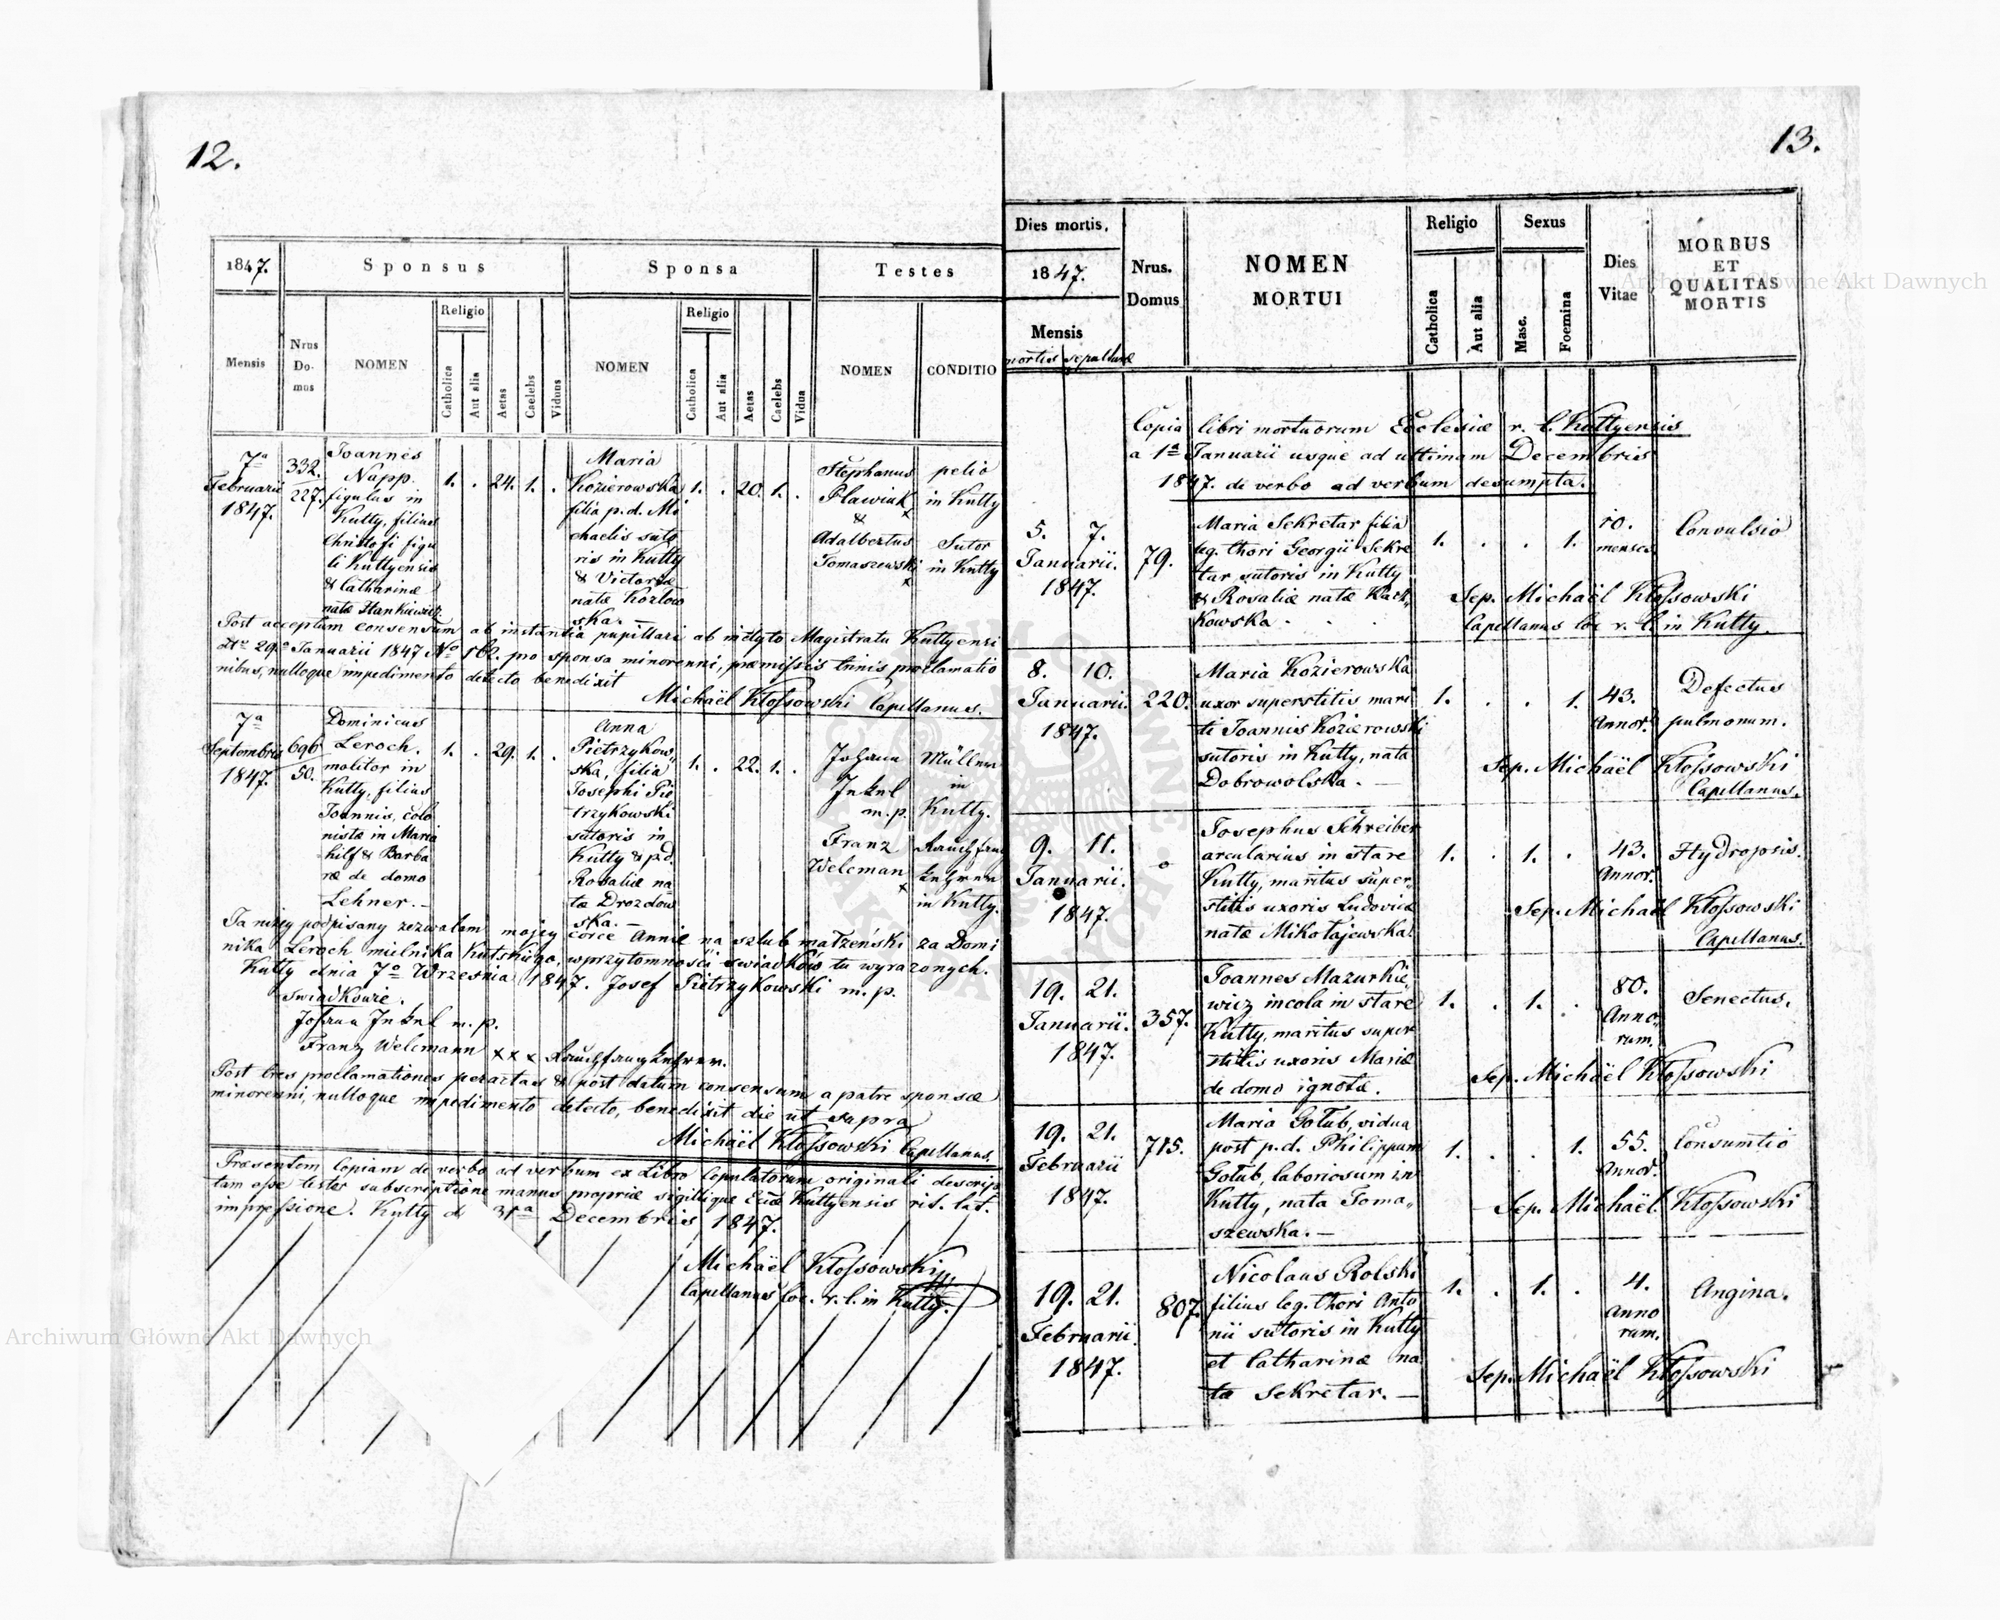 12.
1847.
Sponsus
Sponsa
Testes
Mensis
Nrus Do- mus
NOMEN
Religio
Catholica
Aut alia
Aetas
Caelebs
Viduus
NOMEN
Religio
Catholica
Aut alia
Aetas
Caelebs
Vidua
NOMEN
CONDITIO
7ª
Februarii
1847.
332.
227.
Joannes
Napp.
figulus in
Kutty, filius
Christofi figu
li Kuttyensis
& Catharinæ
natæ Stankiewicz
1. . 24. 1. .
Maria
Kozierowska
filia p. d. Mi
chaelis suto
ris in Kutty
& Victoriæ
natæ Kozłow
ska. —
1. . 20. 1. .
Stephanus
Sławiak
x
&
Adalbertus
Tomaszewski
x
pelio
in Kutty
Sutor
in Kutty
Post acceptum consensum ab instantia pupillari ab inclyto Magistratu Kuttyensi
dto 29a Januarii 1847 No 562. pro sponsa minorenni, præmissis trinis proclamatio
nibus, nulloque impedimento detecto benedixit
Michaël Kłossowski Capellanus.
7ª
Septembris
1847.
696
50.
Dominicus
Leroch.
molitor in
Kutty, filius
Joannis, colo
nistæ in Maria
hilf & Barba
ræ de domo
Lehner. —
1. . 29. 1. .
Anna
Pietrzykow„
ska, filia
Josephi Pie
trzykowski
sutoris in
Kutty & p.d.
Rosaliæ na
tæ Drozdow
ska. —
1. . 22. 1. .
Johann
Inkel
m. p.
Franz
Welcman
x
Müller
in
Kutty.
Rauchfang
kehrer
in Kutty.
Ja niżey podpisany zezwalam mojey córce Annie na szlub małżeński za Domi
nika Leroch mielnika Kutskiego, w przytomności świadków tu wyrażonych.
Kutty dnia 7o Września 1847. Josef Pietrzykowski m. p.
Swiadkowie.
Johann Inkel m. p.
Franz Welcmann x x x Rauchfangkehrer.
Post tres proclamationes peractas & post datum consensum a patre sponsæ
minorenni, nulloque impedimento detecto, benedixit die ut supra
Michaël Kłossowski Capellanus.
Præsentem Copiam de verbo ad verbum ex Libro Copulatorum originali descrip
tam esse testor subscriptione manus propriæ sigillique Eccæ Kuttyensis rit. lat.
impressione. Kutty d 31ª Decembris 1847.
Michaël Kłossowski
Capellanus loc. r. l. in Kutty.
13.
Dies mortis.
1847.
Mensis
mortis sepulturæ
Nrus. Domus
NOMEN
MORTUI
Religio
Catholica
Aut alia
Sexus
Masc.
Foemina
Dies
Vitae
MORBUS
ET
QUALITAS
MORTIS
Copia libri mortuorum Ecclesiæ r. l. Kuttyensis
a 1ª Januarii usque ad ultimam Decembris
1847. de verbo ad verbum desumpta.
5. 7.
Januarii.
1847.
79.
Maria Sekretar filia
leg. thori Georgii Sekre
tar, sutoris in Kutty
& Rosaliæ natæ Kacz„
kowska .
1. . . 1.
10.
menses.
Convulsio
Sep. Michaël Kłossowski
Capellanus loc r. l. in Kutty.
8. 10.
Januarii.
1847.
220.
Maria Kozierowska
uxor superstitis mari
ti Joannis Kozierowski
sutoris in Kutty, nata
Dobrowolska. —
1. . . 1.
43.
Annor.
Defectus
pulmonum.
Sep. Michaël Kłossowski
Capellanus.
9. 11.
Januarii.
1847.
o
Josephus Schreiber
arcularius in stare
Kutty, maritus super„
stitis uxoris Ludovicæ
natæ Mikołajewska.
1. . 1. .
43.
Annor.
Hydropsis.
Sep. Michaël Kłossowski
Capellanus.
19. 21.
Januarii.
1847.
357.
Joannes Mazurkie„
wicz incola in stare
Kutty, maritus super
stitis uxoris Mariæ
de domo ignotæ.
1. . 1. .
80.
Anno„
rum.
Senectus.
Sep. Michaël Kłossowski
19. 21.
Februarii
1847.
715.
Maria Gołub, vidua
post p. d. Philippum
Gołub, laboriosum in
Kutty, nata Toma„
szewska. —
1. . . 1.
55.
Annor.
Consumtio
Sep. Michaël Kłossowski
19. 21.
Februarii
1847.
807.
Nicolaus Rolski
filius leg. thori Anto
nii sutoris in Kutty
et Catharinæ na
tæ Sekretar. —
1. . 1. .
4.
Anno
rum.
Angina.
Sep. Michaël Kłossowski
Archiwum Główne Akt Dawnych
Archiwum Główne Akt Dawnych